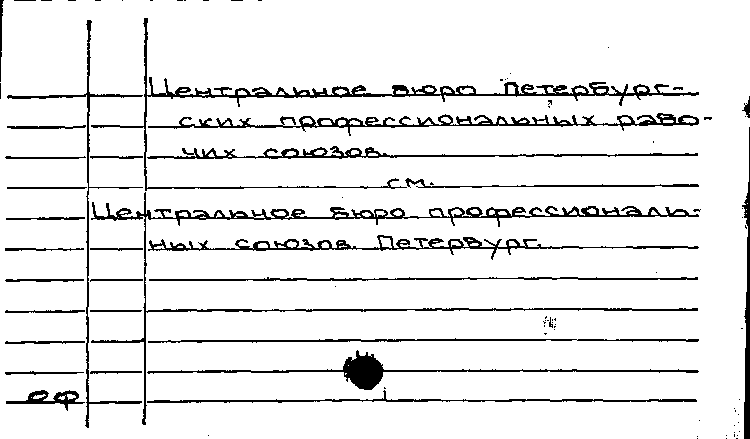 Центральное бюро Петербург-
ских профессиональных рабо-
чих союзов.
см.
Центральное бюро профессиональ-
ных союзов. Петербург.
оф